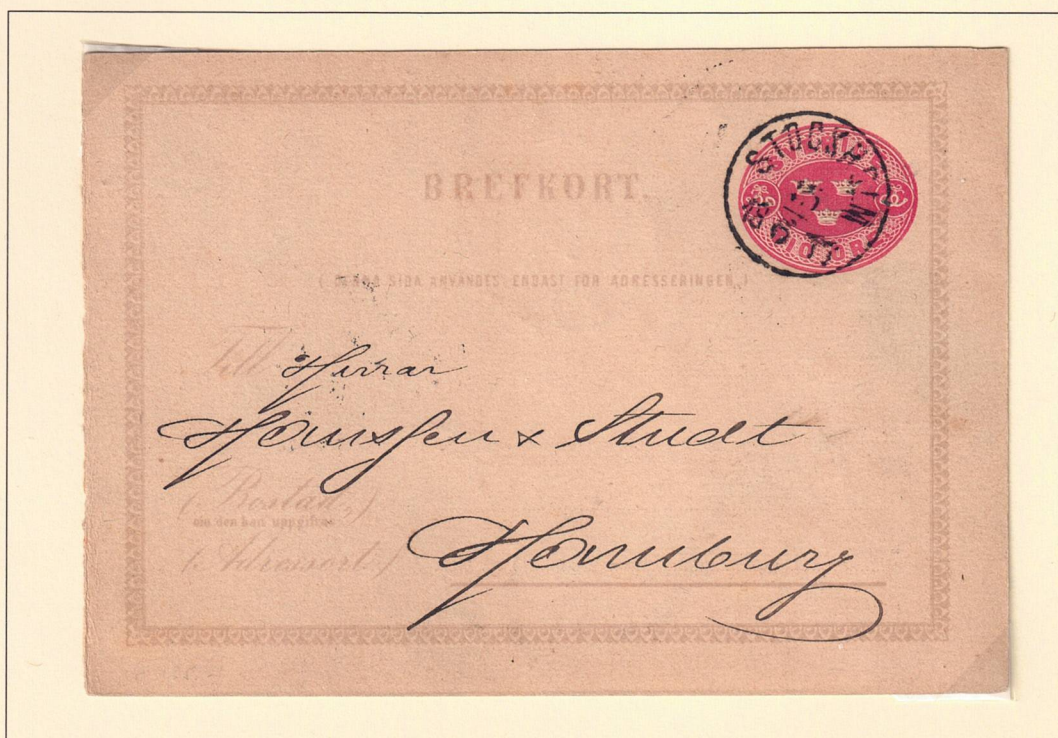 BREFKORT.
STOCKHOLM
TIO ÖR
( DENNA SIDA ANVÄNDES ENDAST FÖR ADRESSERINGEN.)
Till Herrar
Hanssen & Studt
( Bostad,)
om den kan uppgifvas
( Adressort.)
Hamburg